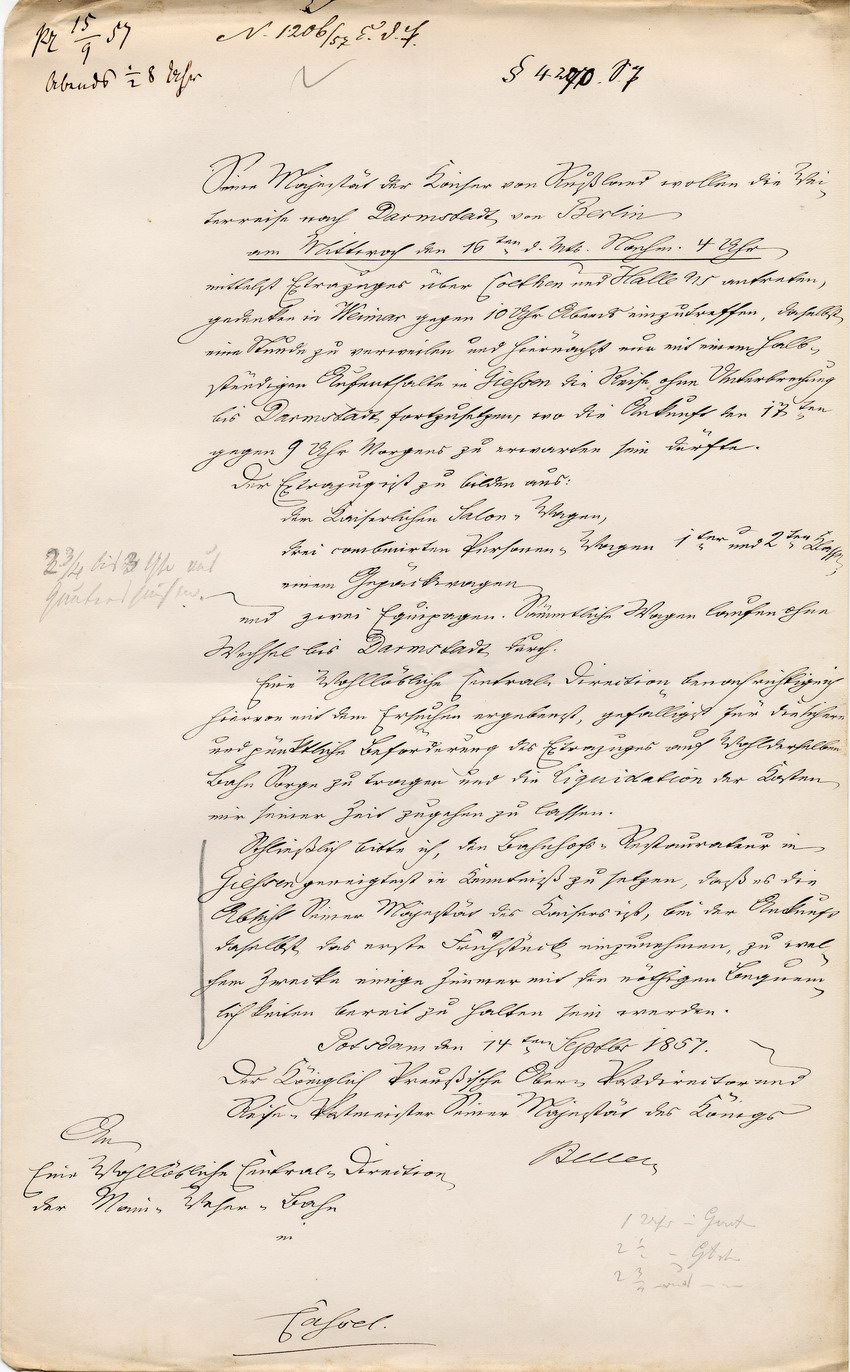 Pr 15/9 57
Abends ½ 8 Uhr
N. 1206/57
§ 4270. 57
Seine Majestät der Kaiser von Rußland wollen die Wei-
terreise nach Darmstadt von Berlin
am Mittwoch den 16ten d. Mts. Nachm. 4 Uhr
mittelst Extrazuges über Coethen und Halle antreten,
gedenken in Weimar gegen 10 Uhr Abends einzutreffen, daselbst
eine Stunde zu verweilen und hiernächst nur mit einem halb-
stündigen Aufenthalte in Giessen die Reise ohne Unterbrechung
bis Darmstadt fortzusetzen, wo die Ankunft den 17ten
gegen 9 Uhr Morgens zu erwarten sein dürfte.
Der Extrazug ist zu bilden aus:
dem Kaiserlichen Salon-Wagen,
drei combinirten Personen-Wagen 1ter und 2ten Klasse,
einem Gepäckwagen
und zwei Equipagen. Sämmtliche Wagen laufen ohne
Wechsel bis Darmstadt durch.
2¾ bis 3 Uhr
Eine Wohllöbliche Central-Direction benachrichtige ich
hiervon mit dem Ersuchen ergebenst, gefälligst für die sichere
und pünktliche Beförderung des Extrazuges auf Wohlderselben
Bahn Sorge zu tragen und die Liquidation der Kosten
mir seiner Zeit zugehen zu lassen.
Schließlich bitte ich, den Bahnhofs-Restaurateur in
Giessen geneigtest in Kenntniß zu setzen, daß es die
Absicht Seiner Majestät des Kaisers ist, bei der Ankunft
daselbst das erste Frühstück einzunehmen, zu wel-
chem Zwecke einige Zimmer mit den nöthigen Bequem-
lichkeiten bereit zu halten sein werden.
Potsdam den 14ten Septbr 1857.
Der Königlich Preußische Ober-Postdirector und
Reise-Postmeister Seiner Majestät des Königs
An
Eine Wohllöbliche Central-Direction
der Main-Weser-Bahn
in
Cassel.
1 Uhr
2½
2¾